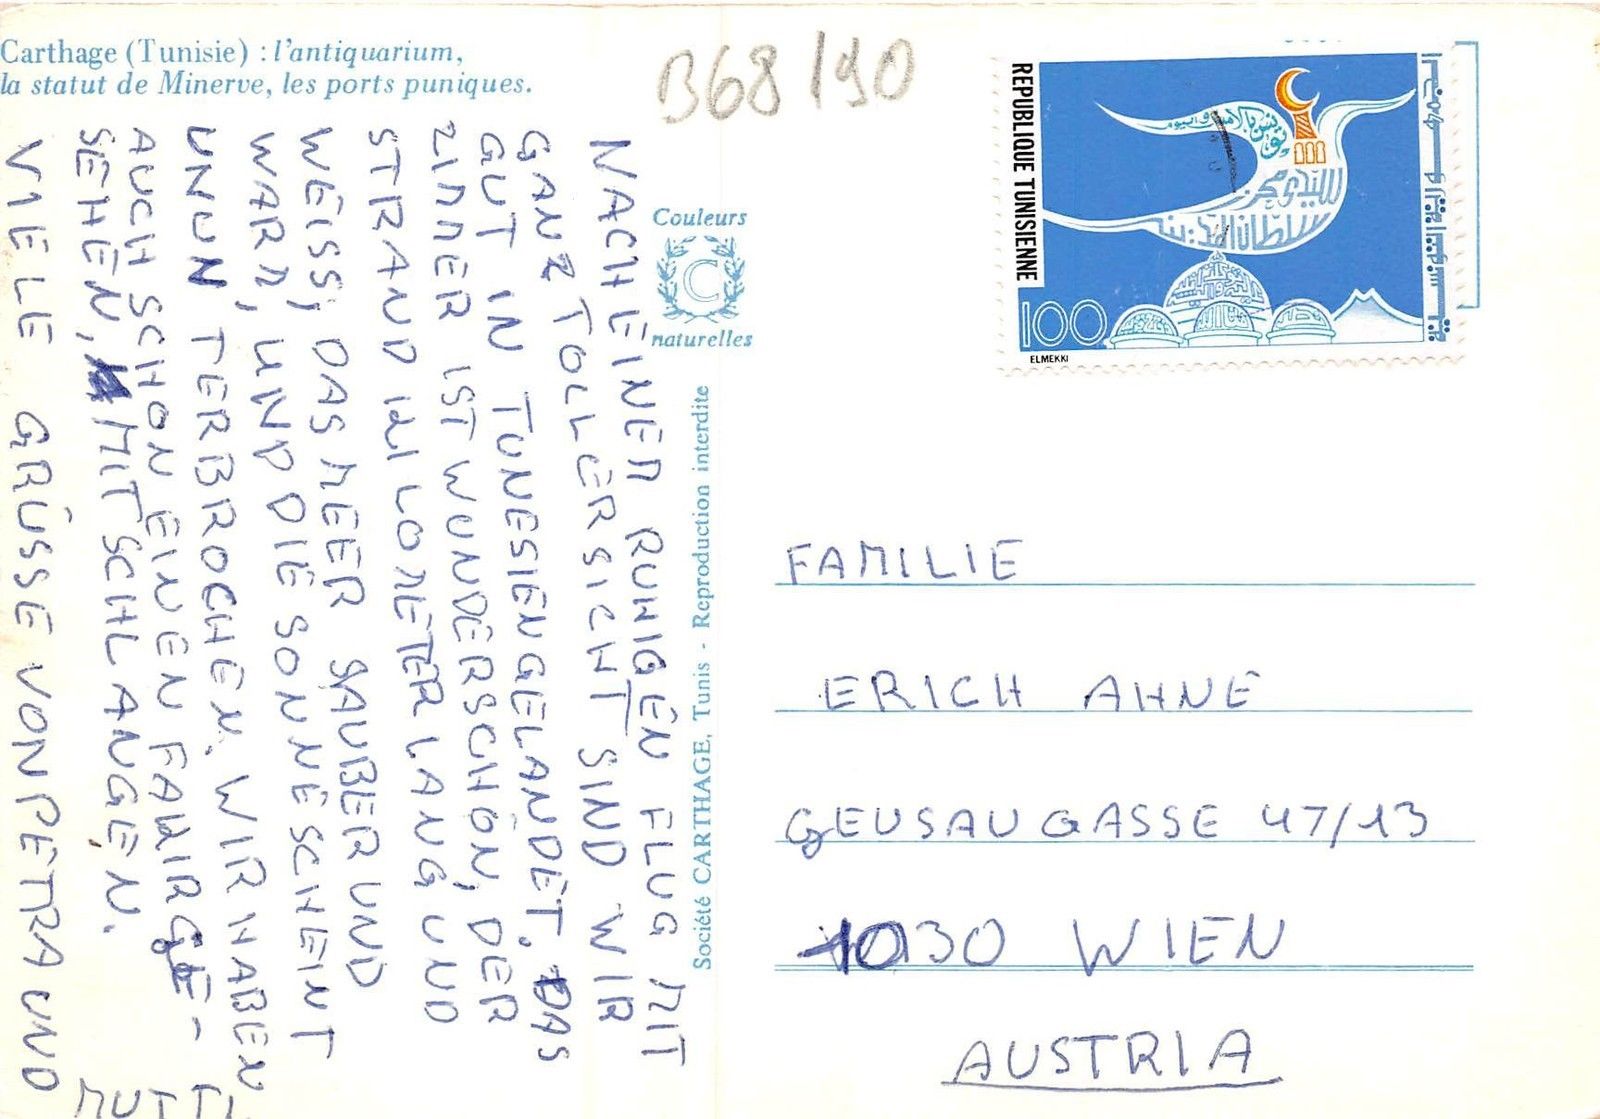 Carthage (Tunisie) : l'antiquarium,
la statut de Minerve, les ports puniques.
B68/90
NACH EINEM RUHIGEN FLUG MIT
GANZ TOLLER SICHT SIND WIR
GUT IN TUNESIEN GELANDET. DAS
ZIMMER IST WUNDERSCHÖN, DER
STRAND KILOMETER LANG UND
WEISS, DAS MEER SAUBER UND
WARM, UND DIE SONNE SCHEINT
UNUNTERBROCHEN. WIR HABEN
AUCH SCHON EINEN FAKIR GE-
SEHEN, MIT SCHLANGEN.
VIELE GRÜSSE VON PETRA UND
MUTTI
Couleurs
C
naturelles
Société CARTHAGE, Tunis - Reproduction interdite
REPUBLIQUE TUNISIENNE
100
ELMEKKI
FAMILIE
ERICH AHNE
GEUSAUGASSE 47/13
1030 WIEN
AUSTRIA